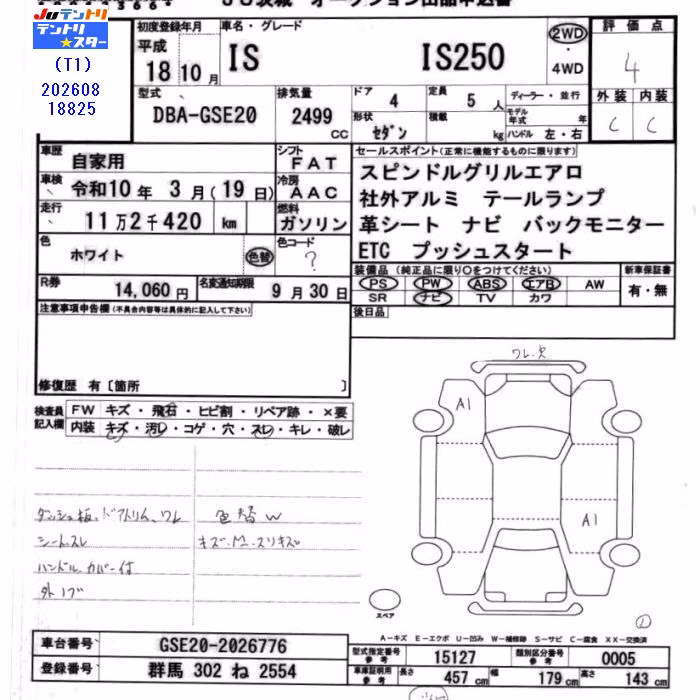 JUテントリ
テントリ
★スター
(T1)
202608
18825
JU茨城 オークション出品申込書
初度登録年月
平成
18年10月
車名・グレード
IS IS250
2WD
・
4WD
評価点
4
外装 内装
C C
型式
DBA-GSE20
排気量
2499
cc
ドア 4
定員 5人
形状 セダン
積載 kg
ディーラー・並行
モデル年式 年
ハンドル 左・右
車歴 自家用
シフト FAT
車検 令和10年 3月(19日)
冷房 AAC
走行 11万2千420 km
燃料 ガソリン
色 ホワイト 色替
色コード ?
R券 14,060円
名変通知期限 9月30日
セールスポイント(正常に機能するものに限ります)
スピンドルグリルエアロ
社外アルミ テールランプ
革シート ナビ バックモニター
ETC プッシュスタート
装備品 (純正品に限り○をつけてください)
PS PW ABS エアB AW
SR ナビ TV カワ
新車保証書
有・無
後日品
注意事項申告欄(不具合内容等は具体的に記入して下さい)
修復歴 有〔箇所 〕
検査員記入欄
FW キズ・飛石・ヒビ割・リペア跡・×要
内装 キズ・汚レ・コゲ・穴・スレ・キレ・破レ
ダッシュ板、ドアトリム、ワレ
シートスレ
ハンドルカバー付
色替W
キズ・M・スリキズ
ワレ・欠
A1
A1
スペア
①
A-キズ E-エクボ U-凹み W-補修跡 S-サビ C-腐食 XX-交換済
車台番号 GSE20-2026776
登録番号 群馬 302 ね 2554
型式指定番号 参考 15127
類別区分番号 参考 0005
車庫証明用 参考 長さ 457cm 幅 179cm 高さ 143cm